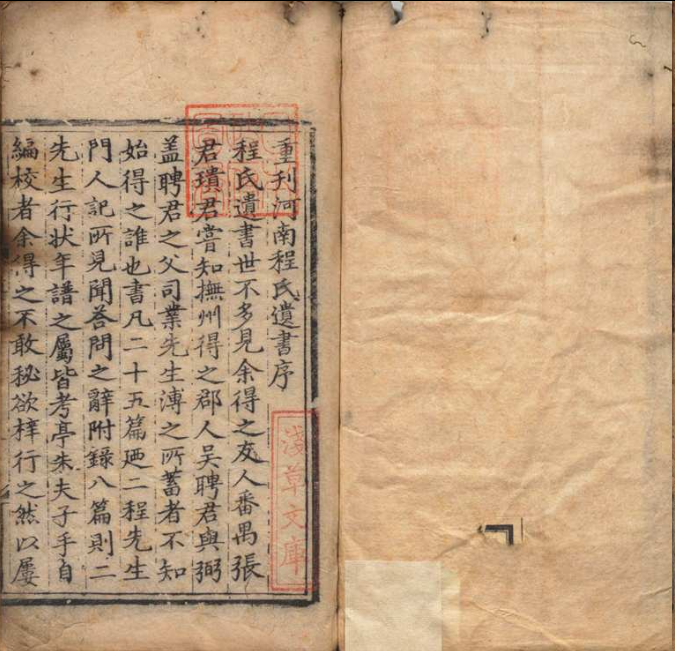 重刊河南程氏遺書序
程氏遺書世不多見余得之友人番禺張
君瓚君嘗知撫州得之郡人吳聘君與弼
盖聘君之父司業先生溥之所蓄者不知
始得之誰也書凡二十五篇廼二程先生
門人記所見聞荅問之辭附錄八篇則二
先生行状年譜之屬皆考亭朱夫子手自
編校者余得之不敢秘欲梓行之然以屢
淺草文庫